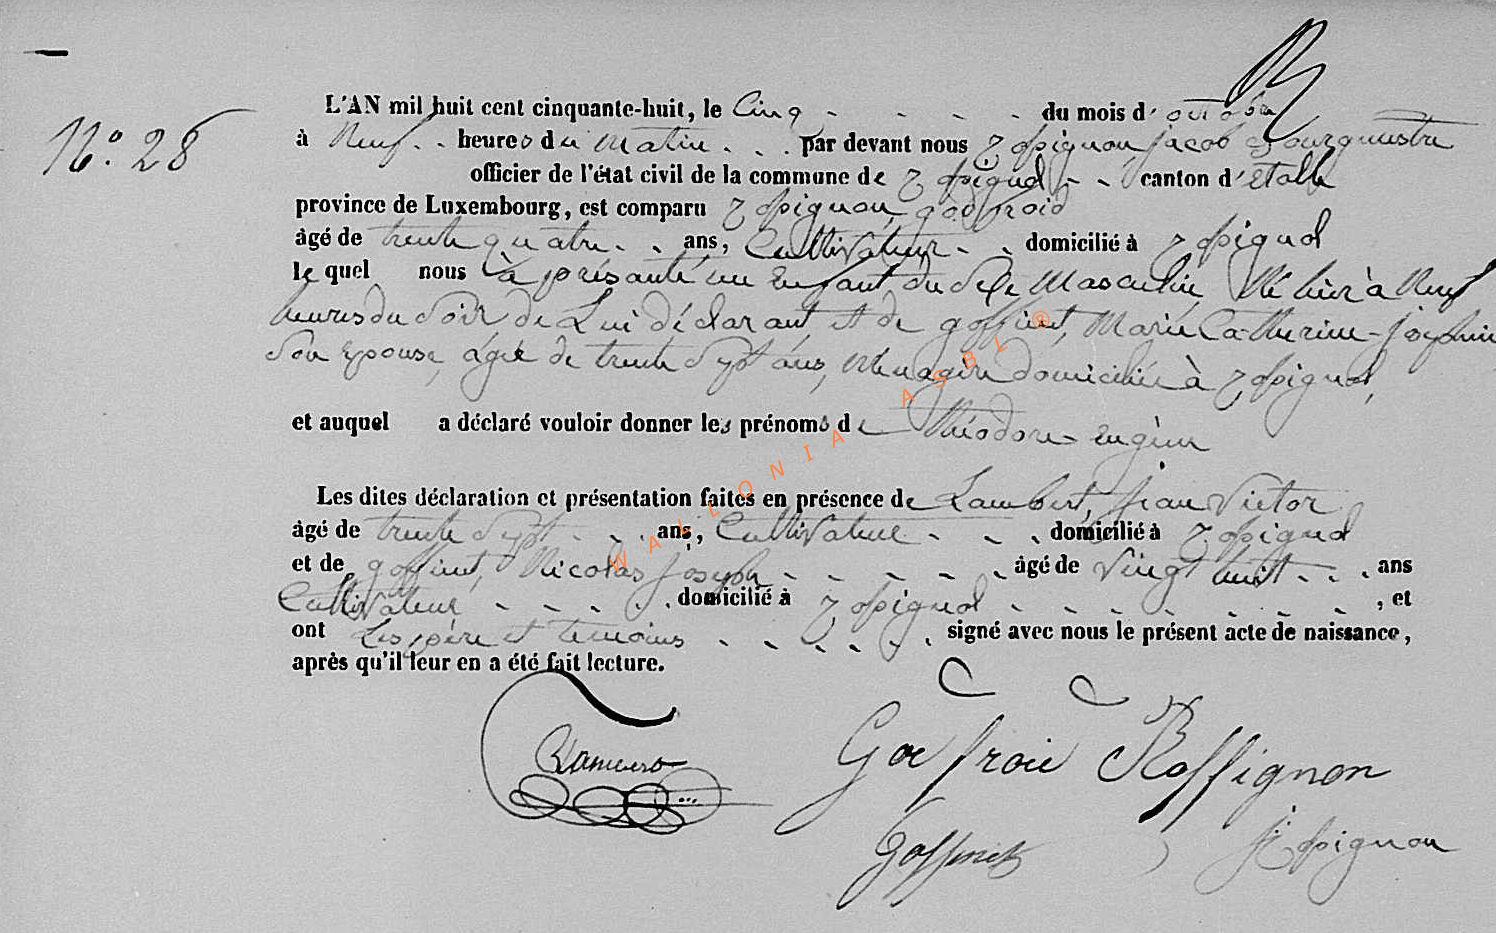 L'AN mil huit cent cinquante-huit, le Cinq - - - - du mois d'octobre
N.° 28
à Neuf - - heures du Matin - - par devant nous Rossignon, Jacob Bourgmestre
officier de l'état civil de la commune de Rossignol - - canton d'Etalle
province de Luxembourg, est comparu Rossignon, godfroid
âgé de trente quatre - - ans, Cultivateur - - domicilié à Rossignol
le quel nous à présanté un Enfant du Sexe Masculin, Né hier à Neuf
heures du Soir de Lui déclarant et de goffinet, Marie Catherine-Josephine
Son Epouse, agée de trente Sept ans, Menagère domiciliée à Rossignol,
et auquel a déclaré vouloir donner les prénoms de Théodore-Eugène
Les dites déclaration et présentation faites en présence de Lambert, Jean Victor
âgé de trente Sept - - - ans, Cultivateur - - - domicilié à Rossignol
et de goffinet, Nicolas Joseph - - - - - âgé de Vingt huit - - - ans
Cultivateur - - - - - domicilié à Rossignol - - - - - - - - , et
ont Les père et temoins - - - - - - signé avec nous le présent acte de naissance,
après qu'il leur en a été fait lecture.
Godfroid Rossignon
Goffinet
Rossignon
WALLONIA ASBL ®